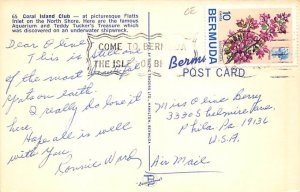 65 Coral Island Club - at picturesque Flatts
Inlet on the North Shore. Here are the famous
Aquarium and Teddy Tucker's Treasure which
was discovered on an underwater shipwreck.
Dear Oline,
This is still one
of the most beautiful
spots on earth
I really do love it
here.
Hope all is well
with you.
Ronnie Ward
COME TO BERMUDA
THE ISLE FOR
6E
10
BERMUDA
Bermuda
POST CARD
Miss Oline Berry
3330 S
Phila Pa 19136
U.S.A.
Air Mail